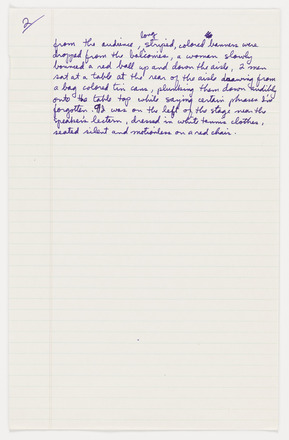 2
long
from the audience, striped, colored banners were
dropped from the balconies, a woman slowly
bounced a red ball up and down the aisle, 2 men
sat at a table at the rear of the aisle drawing from
a bag colored tin cans, plunking them down audibly
onto the table top while saying certain phrases I've
forgotten. I was on the left of the stage near the
speaker's lectern, dressed in white tennis clothes,
seated silent and motionless on a red chair.